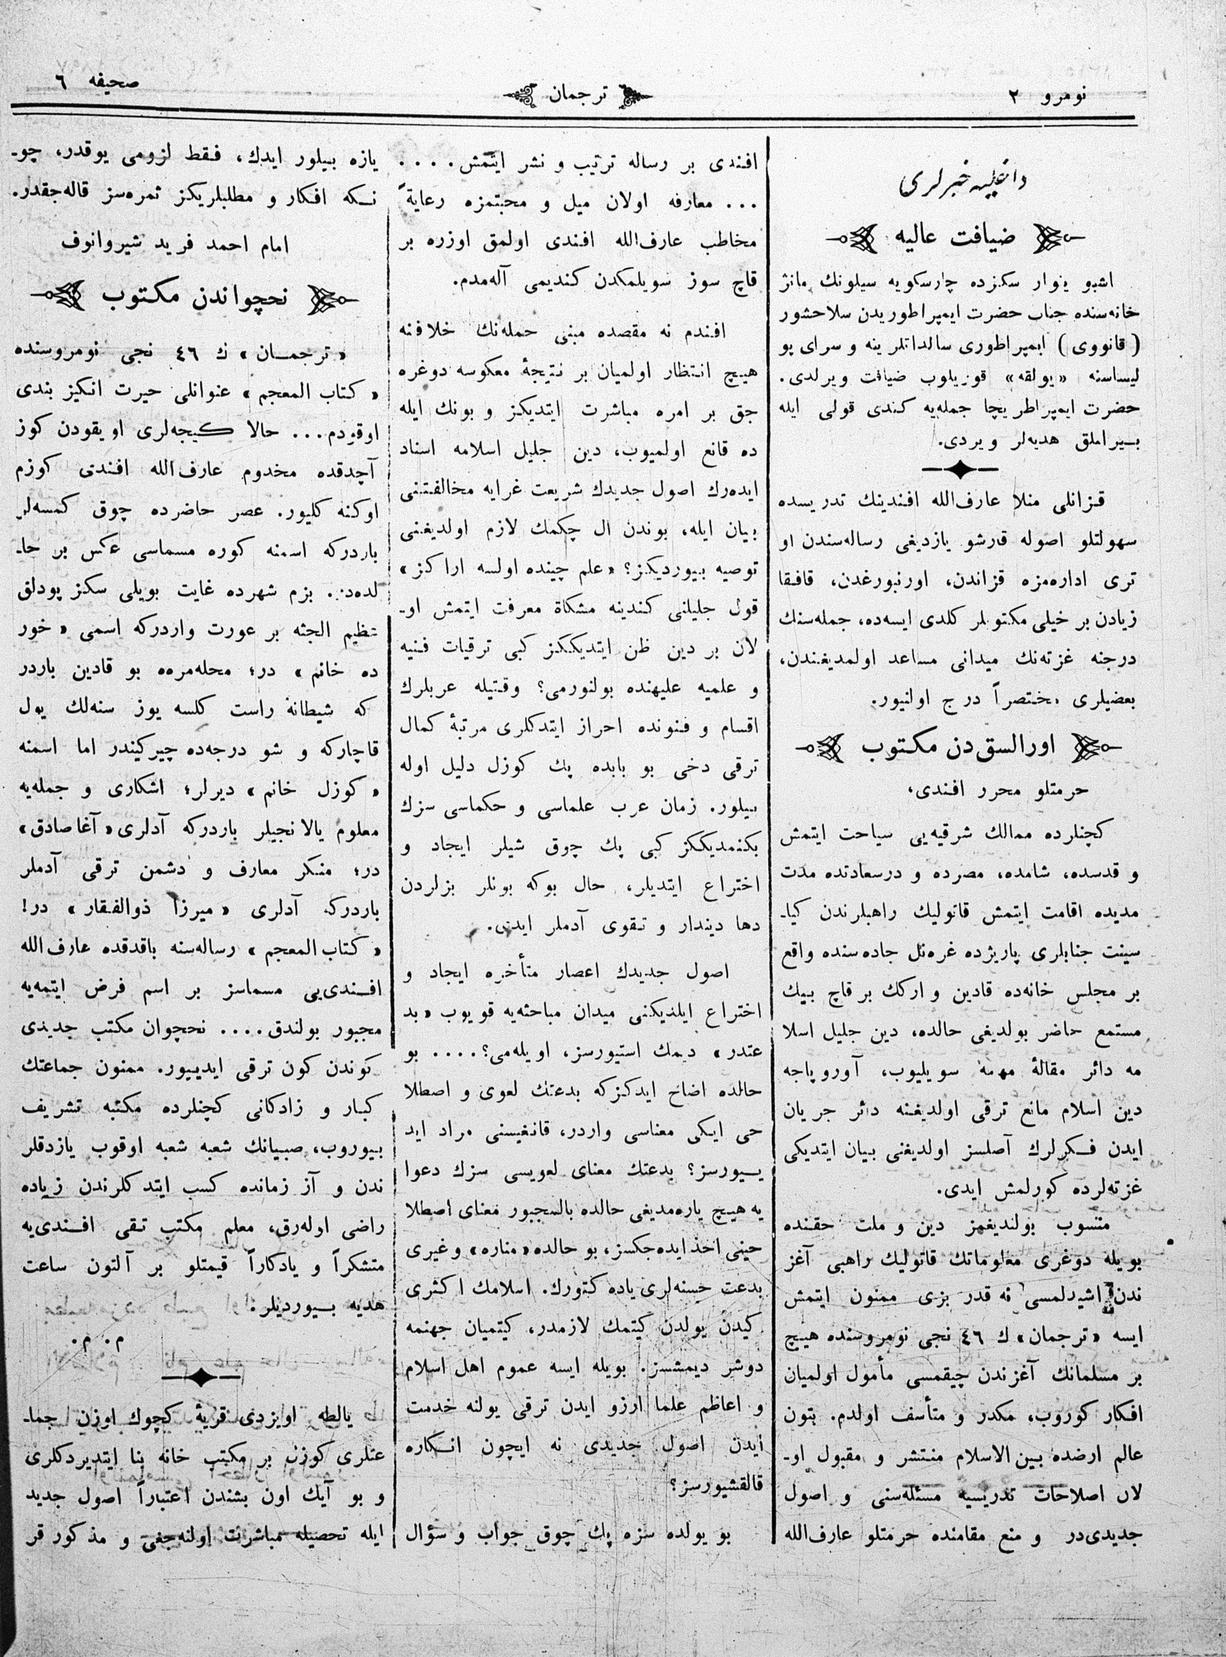 نومرو ٢
ترجمان
صحیفه ٦
داخلیه خبرلری
ضیافت عالیه
اشبو ینوار سکزده چارسکویه سیلونك مانژ
خانه‌سنده جناب حضرت ایمپراطوریدن سلاحشور
(قانووی) ایمپراطوری سالداتلرینه و سرای پو
لیساسنه «یولقه» قوریلوب ضیافت ویرلدی.
حضرت ایمپراطریچا جمله‌یه کندی قولی ایله
بیراملق هدیه‌لر ویردی.
قزانلی منلا عارف‌الله افندینك تدریسده
سهولتلو اصوله قارشو یازدیغی رساله‌سندن او
تری اداره‌مزه قزاندن، اورنبورغدن، قافقا
زیادن بر خیلی مکتوبلر کلدی ایسه‌ده، جمله‌سنك
درجنه غزته‌نك میدانی مساعد اولمدیغندن،
بعضیلری مختصراً درج اولنیور.
اورالسق‌دن مکتوب
حرمتلو محرر افندی،
کچنلرده ممالك شرقیه‌یی سیاحت ایتمش
و قدسده، شامده، مصرده و درسعادتده مدت
مدیده اقامت ایتمش قاتولیك راهبلرندن کیا-
سینت جنابلری پاریژده غره‌نل جاده‌سنده واقع
بر مجلس خانه‌ده قادین و ارکك بر قاچ بیك
مستمع حاضر بولدیغی حالده، دین جلیل اسلا
مه دائر مقالۀ مهمه سویلیوب، آوروپاجه
دین اسلام مانع ترقی اولدیغنه دائر جریان
ایدن فکرلرك آصلسز اولدیغنی بیان ایتدیکی
غزته‌لرده کورلمش ایدی.
منسوب بولندیغمز دین و ملت حقنده
بویله دوغری معلوماتك قاتولیك راهبی آغز
ندن اشیدلمسی نه قدر بزی ممنون ایتمش
ایسه «ترجمان» ك ٤٦ نجی نومروسنده هیچ
بر مسلمانك آغزندن چیقمسی مأمول اولمیان
افکار کوروب، مکدر و متأسف اولدم. بتون
عالم ارضده بین‌الاسلام منتشر و مقبول او-
لان اصلاحات تدریسیه مسئله‌سنی و اصول
جدیدی‌در و منع مقامنده حرمتلو عارف‌الله
افندی بر رساله ترتیب و نشر ایتمش....
... معارفه اولان میل و محبتمزه رعایةً
مخاطب عارف‌الله افندی اولمق اوزره بر
قاچ سوز سویلمکدن کندیمی آله‌مدم.
افندم نه مقصده مبنی حمله‌نك خلافنه
هیچ انتظار اولمیان بر نتیجۀ معکوسه دوغره
جق بر امره مباشرت ایتدیکز و بونك ایله
ده قانع اولمیوب، دین جلیل اسلامه اسناد
ایده‌رك اصول جدیدك شریعت غرایه مخالفتنی
بیان ایله، بوندن ال چکمك لازم اولدیغنی
توصیه بیوردیکز؟ «علم چینده اولسه اراکز»
قول جلیلنی کندینه مشکاة معرفت ایتمش او-
لان بر دین ظن ایتدیککز کبی ترقیات فنیه
و علمیه علیهنده بولنورمی؟ وقتیله عربلرك
اقسام و فنونده احراز ایتدکلری مرتبۀ کمال
ترقی دخی بو بابده پك کوزل دلیل اوله
بیلور. زمان عرب علماسی و حکماسی سزك
بکنمدیککز کبی پك چوق شیلر ایجاد و
اختراع ایتدیلر، حال بوکه بونلر بزلردن
دها دیندار و تقوی آدملر ایدی.
اصول جدیدك اعصار متأخره ایجاد و
اختراع ایلدیکنی میدان مباحثه‌یه قویوب «بد
عتدر» دیمك استیورسز، اویله‌می؟.... بو
حالده اضاح ایدکزکه بدعتك لغوی و اصطلا
حی ایکی معناسی واردر، قانغیسنی مراد اید
یـیورسز؟ بدعتك معنای لغویسی سزك دعوا
یه هیچ یاره‌مدیغی حالده بالمجبور معنای اصطلا
حینی اخذ ایده‌جکسز، بو حالده «مناره» و غیری
بدعت حسنه‌لری یاده کتورك. اسلامك اکثری
کیدن یولدن کیتمك لازمدر، کیتمیان جهنمه
دوشر دیمشسز. بویله ایسه عموم اهل اسلام
و اعاظم علما ارزو ایدن ترقی یولنه خدمت
ایدن اصول جدیدی نه ایچون انکاره
قالقشیورسز؟
بو یولده سزه پك چوق جواب و سؤال
یازه بیلور ایدك، فقط لزومی یوقدر، چو-
نکه افکار و مطلبلریکز ثمره‌سز قاله‌جقدر.
امام احمد فرید شیروانوف
نخچواندن مکتوب
«ترجمـان» ك ٤٦ نجی نومروسنده
«کتاب المعجم» عنوانلی حیرت انکیز بندی
اوقیدم... حالا کیجه‌لری اویقودن کوز
آچدقده مخدوم عارف‌الله افندی کوزم
اوکنه کلیور. عصر حاضرده چوق کمسه‌لر
باردرکه اسمنه کوره مسماسی عکس بر حا-
لده‌در. بزم شهرده غایت بویلی سکز پودلق
عظیم الجثه بر عورت واردرکه اسمی «خور
ده خانم» در؛ محله‌مزده بو قادین باردر
که شیطانه راست کلسه یوز سنه‌لك یول
قاچارکه و شو درجه‌ده چیرکیندر اما اسمنه
«کوزل خانم» دیرلر؛ اشکاری و جمله‌یه
معلوم یالانجیلر باردرکه آدلری «آغا صادق»
در؛ منکر معارف و دشمن ترقی آدملر
باردرکه آدلری «میرزا ذوالفقار» در!
«کتاب المعجم» رساله‌سنه باقدقده عارف‌الله
افـندی‌یی مسماسز بر اسم فرض ایتمه‌یه
مجبور بولندق.... نخچوان مکتب جدیدی
کوندن کون ترقی ایدییور. ممنون جماعتك
کبار و زادکانی کچنلرده مکتبه تشریف
بیوروب، صبیانك شعبه شعبه اوقوب یازدقلر
ندن و آز زمانده کسب ایتدکلرندن زیاده
راضی اوله‌رق، معلم مکتب تقی افـندی‌یه
متشکراً و یادکاراً قیمتلو بر آلتون ساعت
هدیه بـیوردیلر.
م. م.
یالطه اویزدی قریۀ کچوك اوزن جما-
عتلری کوزل بر مکتب خانه بنا ایتدیردکلری
و بو آیك اون بشندن اعتباراً اصول جدید
ایله تحصیله مباشرت اولنه‌جغی و مذکور قر